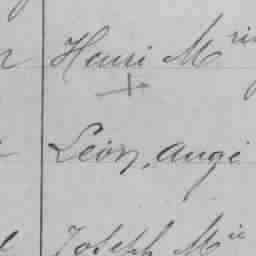 Henri M
Léon, Augé
Joseph Mie